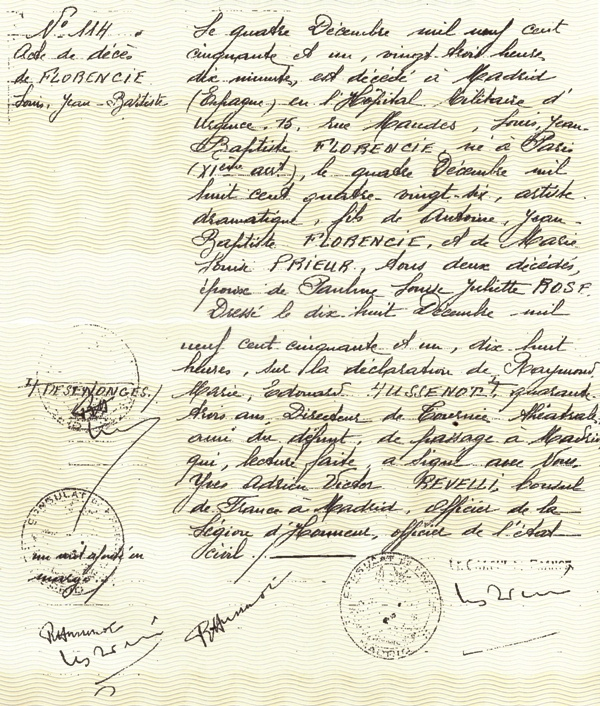 N° 114
Acte de décès
de FLORENCIE
Louis, Jean-Baptiste
Le quatre Décembre mil neuf cent
cinquante et un, vingt trois heures
dix minutes, est décédé à Madrid
(Espagne) en l'Hôpital Militaire d'
Urgence, 15, rue Maudes, Louis, Jean-
Baptiste FLORENCIE, né à Paris
(XIème arrt), le quatre Décembre mil
huit cent quatre-vingt-six, artiste
dramatique, fils de Antoine, Jean-
Baptiste FLORENCIE, et de Marie
Louise PRIEUR, tous deux décédés,
époux de Pauline Louise Juliette ROSE.
Dressé le dix huit Décembre mil
neuf cent cinquante et un, dix huit
heures, sur la déclaration de Raymond
Marie, Edouard HUSSENOT 1/, quarante
trois ans, Directeur de Tournée théatrale
ami du défunt, de passage à Madrid
qui, lecture faite, a signé avec Nous,
Yves Adrien Victor REVELLI, Consul
de France à Madrid, officier de la
Légion d'Honneur, officier de l'état
civil.
1/ DESENONGES /
CONSULAT DE FRANCE
un mot ajouté en
marge
CONSULAT DE FRANCE
MADRID
LE CONSUL DE FRANCE